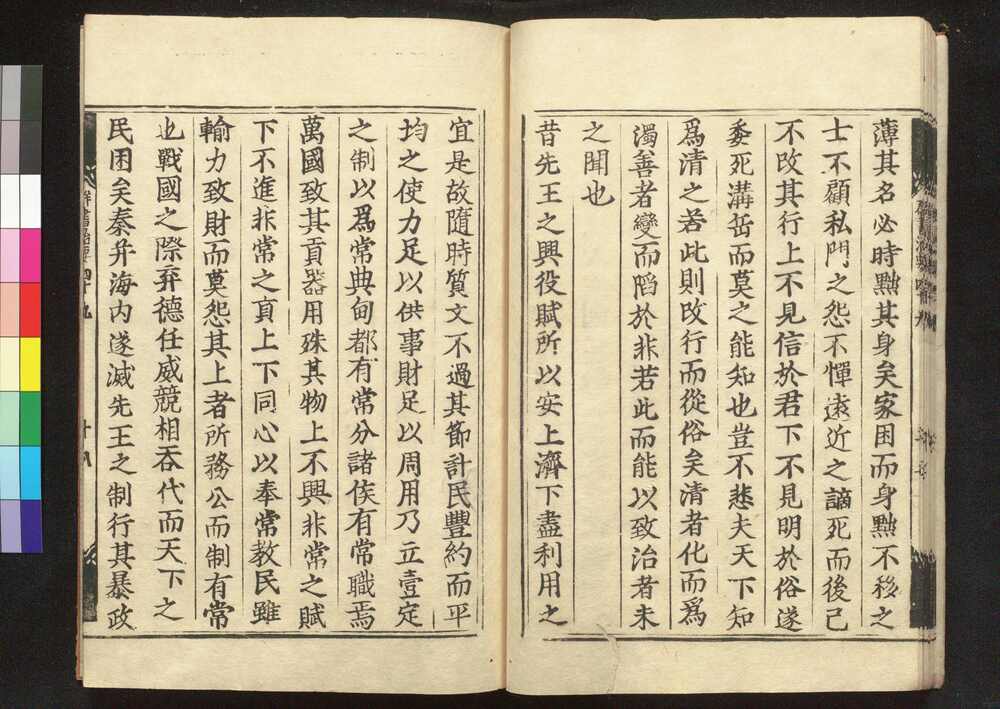 薄其名必時黜其身矣家困而身黜不移之
士不顧私門之怨不憚遠近之謫死而後已
不改其行上不見信於君下不見明於俗遂
委死溝壑而莫之能知也豈不悲夫天下知
爲清之若此則改行而從俗矣清者化而爲
濁善者變而陷於非若此而能以致治者未
之聞也
昔先王之興役賦所以安上濟下盡利用之
宜是故隨時質文不過其節計民豐約而平
均之使力足以供事財足以周用乃立壹定
之制以爲常典甸都有常分諸侯有常職焉
萬國致其貢器用殊其物上不興非常之賦
下不進非常之貢上下同心以奉常教民雖
輸力致財而莫怨其上者所務公而制有常
也戰國之際弃德任威競相吞代而天下之
民困矣秦并海内遂滅先王之制行其暴政
群書治要四十九
十八